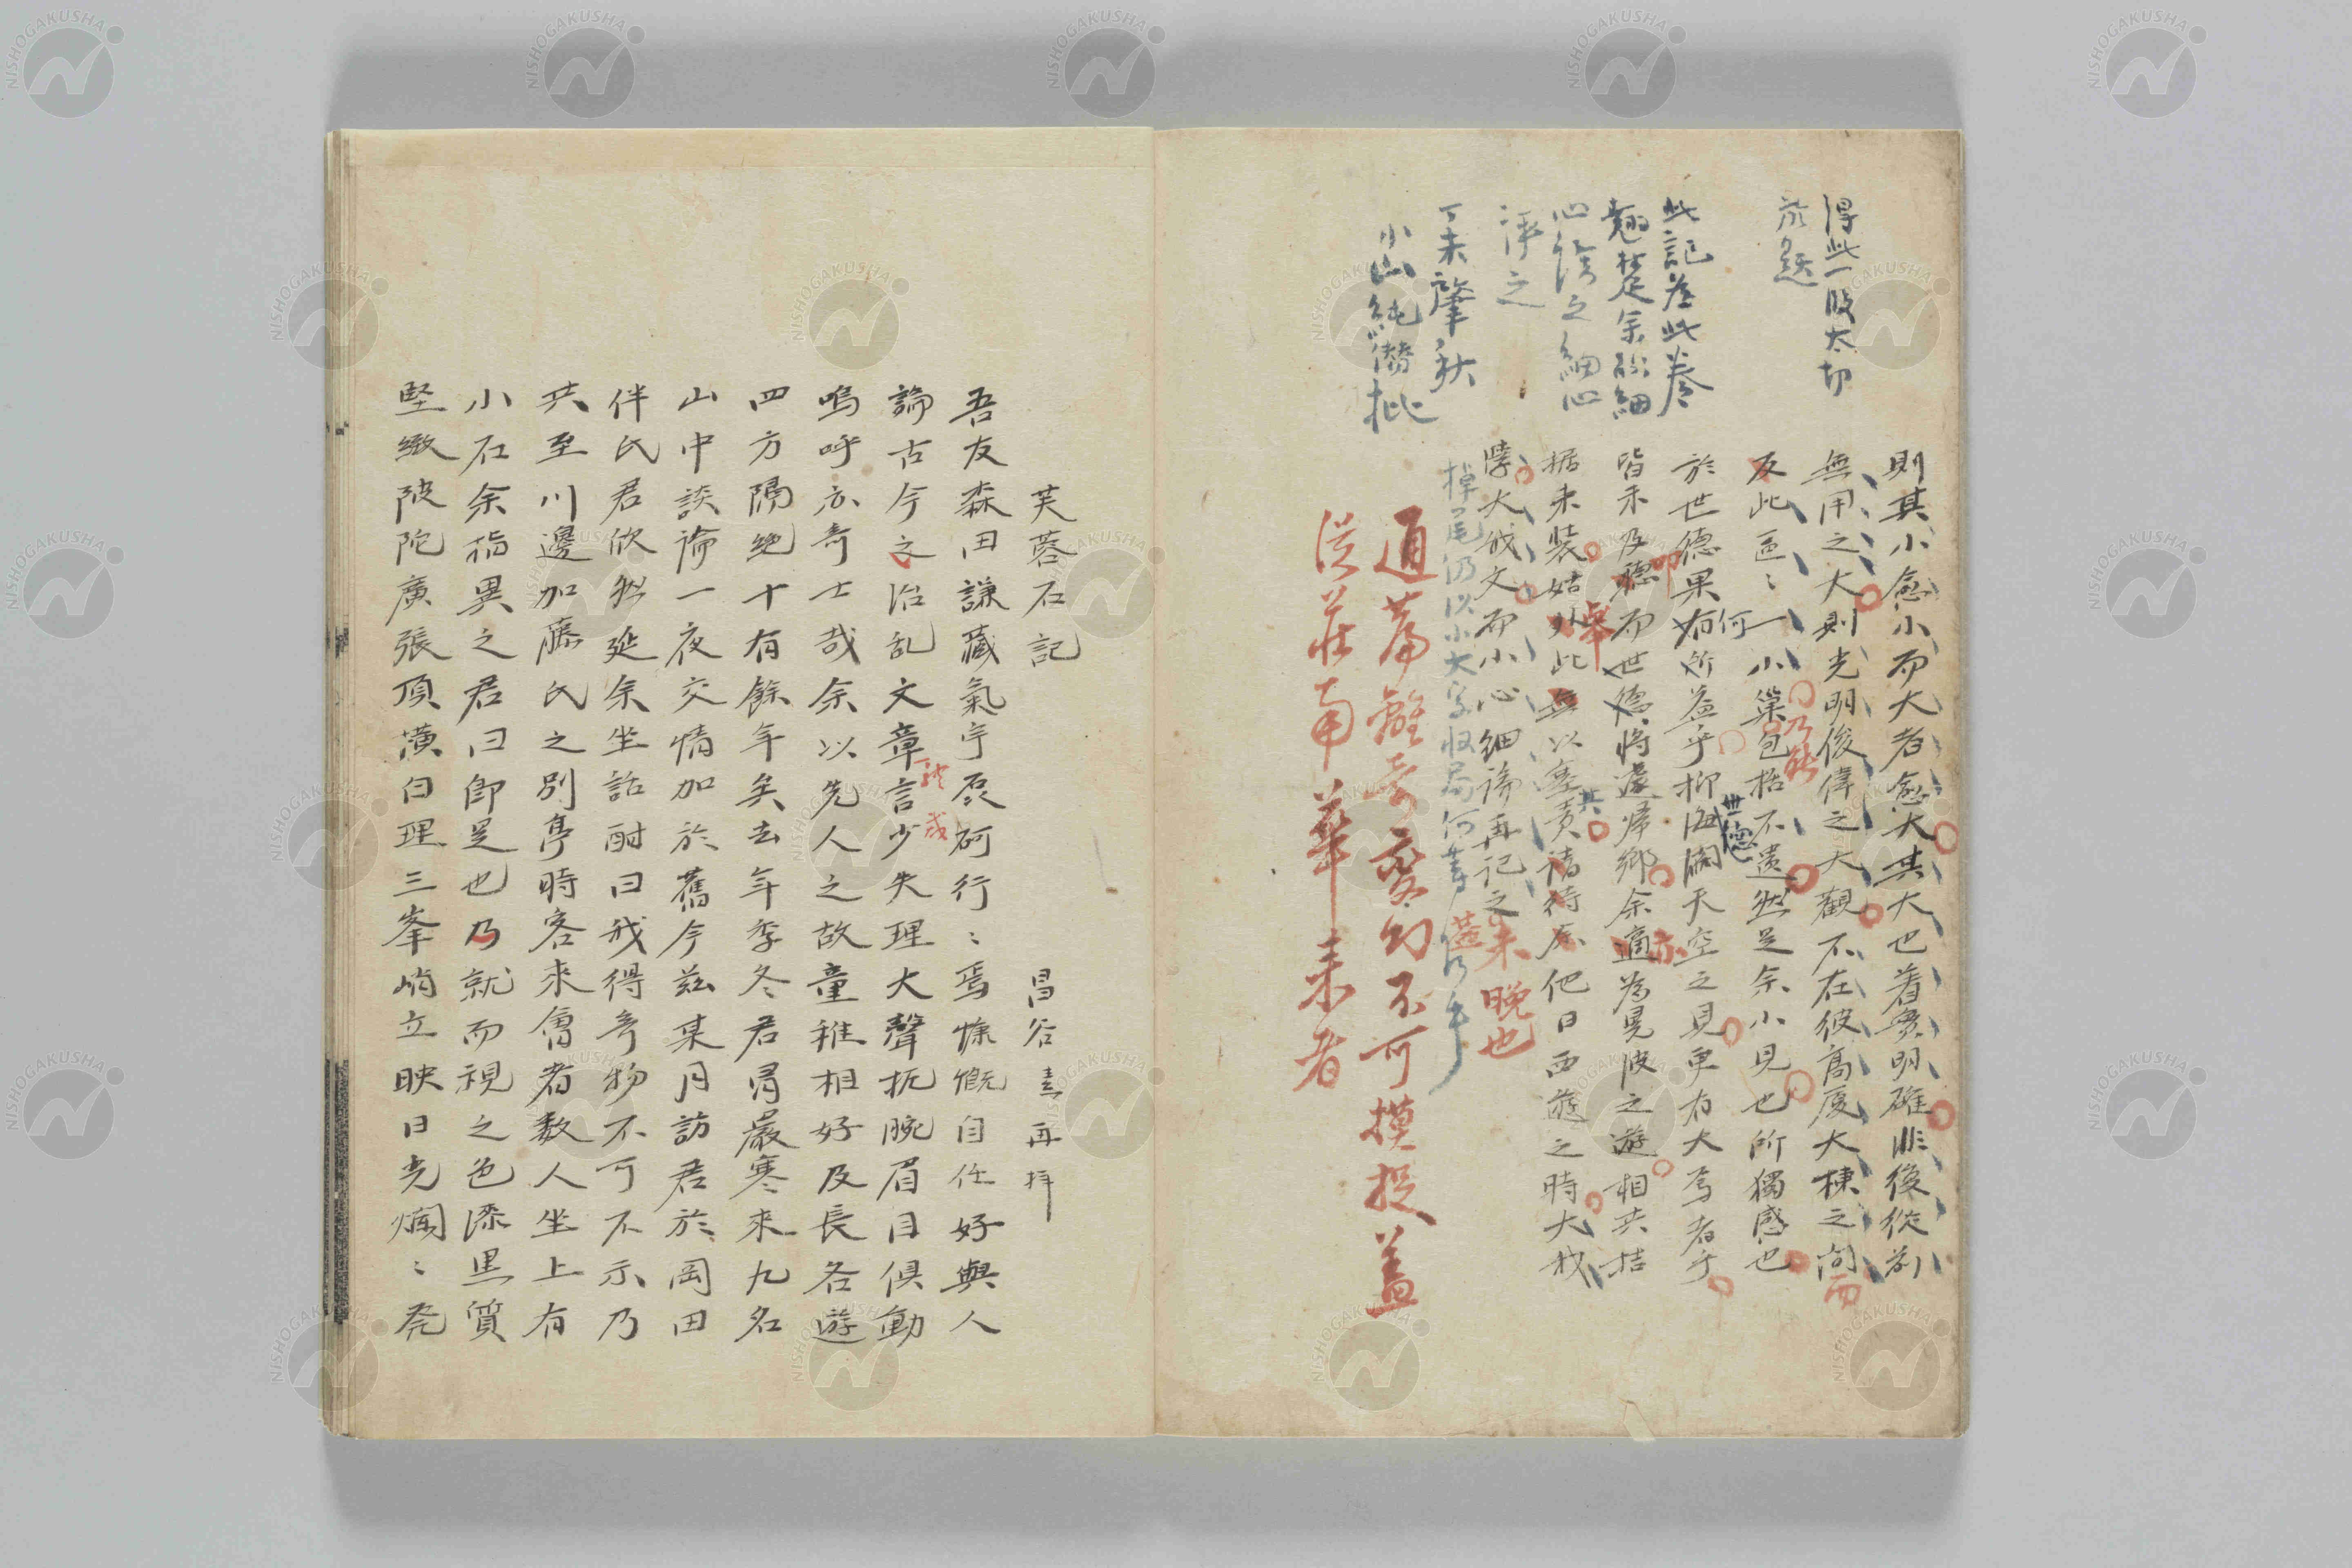 得此一段太切
於題
此記為此卷
翹楚余欲細
心後之細心
評之
丁未肇秋
小山純潛批
則其小愈小而大者愈大其大也着實明確非後從前
無用之大則光明俊偉之大觀不在彼高廈大棟之間而
反此區〻一小巢包括不遺然是余小見也所獨感也
乃能
於世德果有所益乎抑海闊天空之見更有大焉者乎
何
世德
皆未及穩而世德將遽帰鄉余適為晃陂之遊相共拮
叩
亦
据未裝姑以此無以塞責請待居他日西遊之時大我
舉
其
孳大我文而小心細論再記之未晚也
掉尾仍以小大字收局何等
通篇離奇變幻不可摸捉蓋
從莊南華来者
芙蓉石記　昌谷 再拝
吾友森田謙藏氣宇磊砢行〻焉慷慨自任好與人
論古今之治乱文章言少失理大聲扼腕眉目俱動
或
嗚呼亦奇士哉余以先人之故童稚相好及長各遊
四方隔絶十有餘年矣去年季冬君冒嚴寒来九名
山中談論一夜交情加於舊今茲某月訪君於岡田
伴氏君欣然延余坐話酣曰我得奇物不可不示乃
共至川邊加藤氏之別亭時客来會者数人坐上有
小石余指異之君曰卽是也乃就而視之色漆黒質
堅緻陂陀廣張頂潢白理三峯峭立映日光爛〻尭